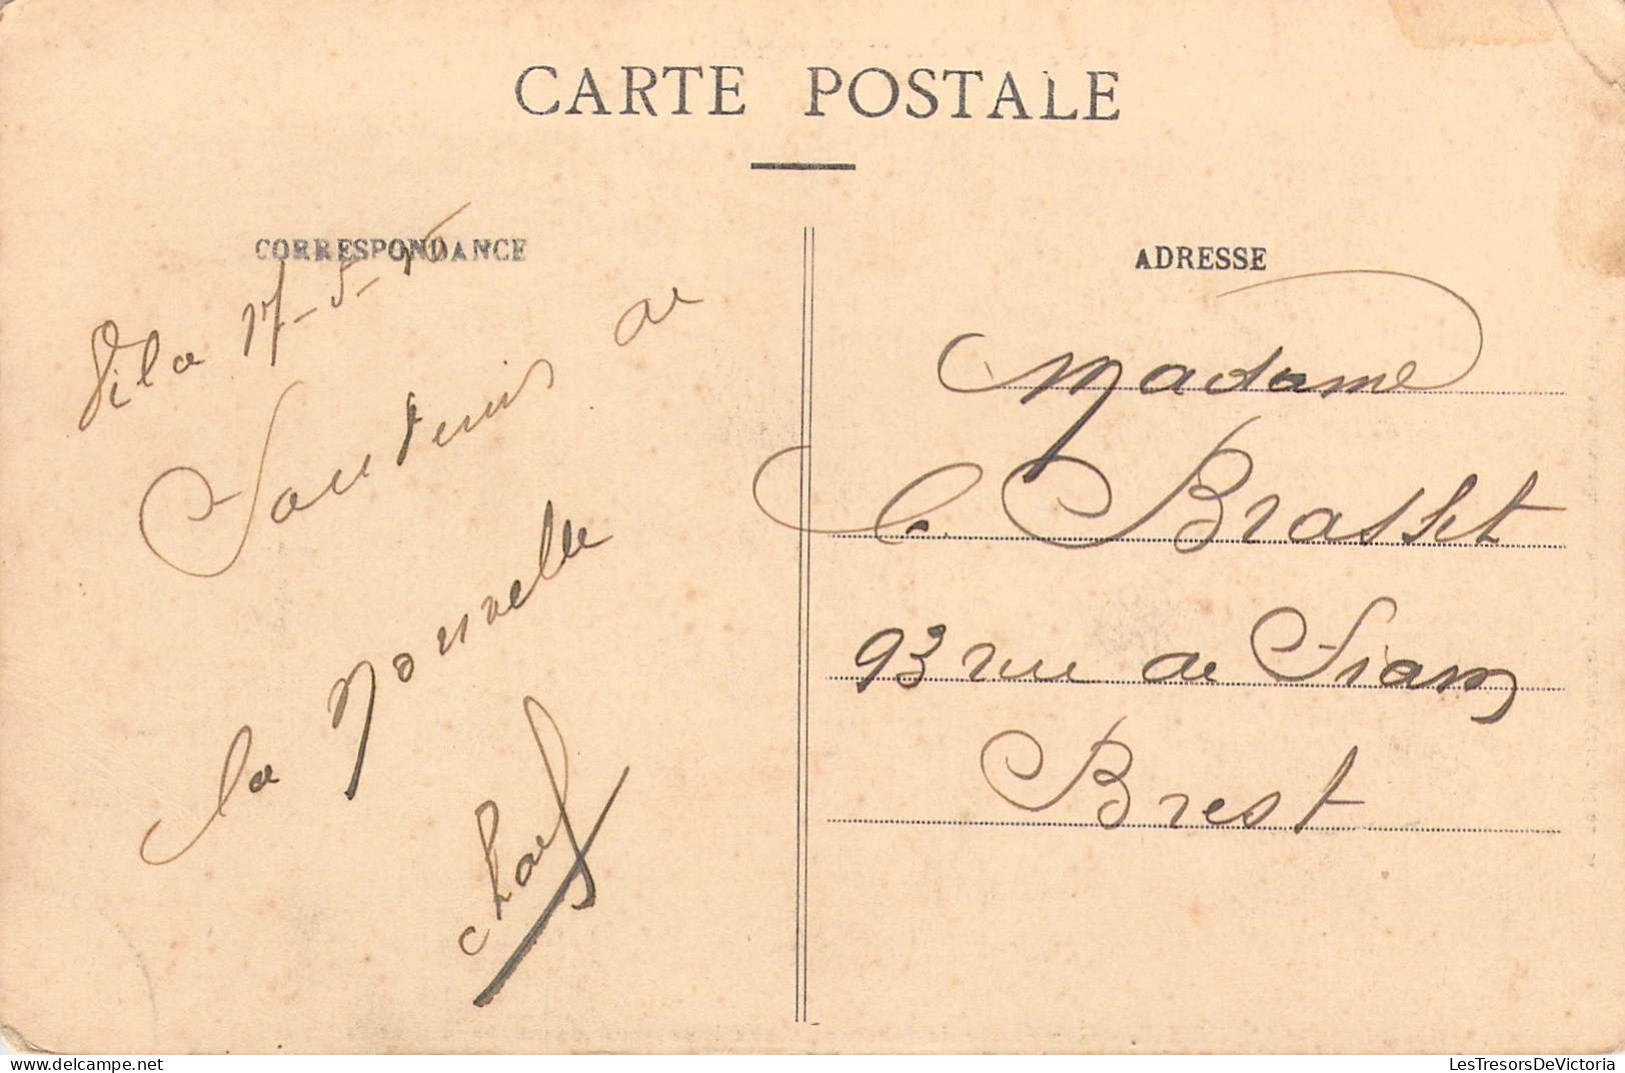 CARTE POSTALE
CORRESPONDANCE
Vila 17-5-
Souvenir de
la Nouvelle
ADRESSE
Madame
Brasset
93 rue de Siam
Brest
LesTresorsDeVictoria